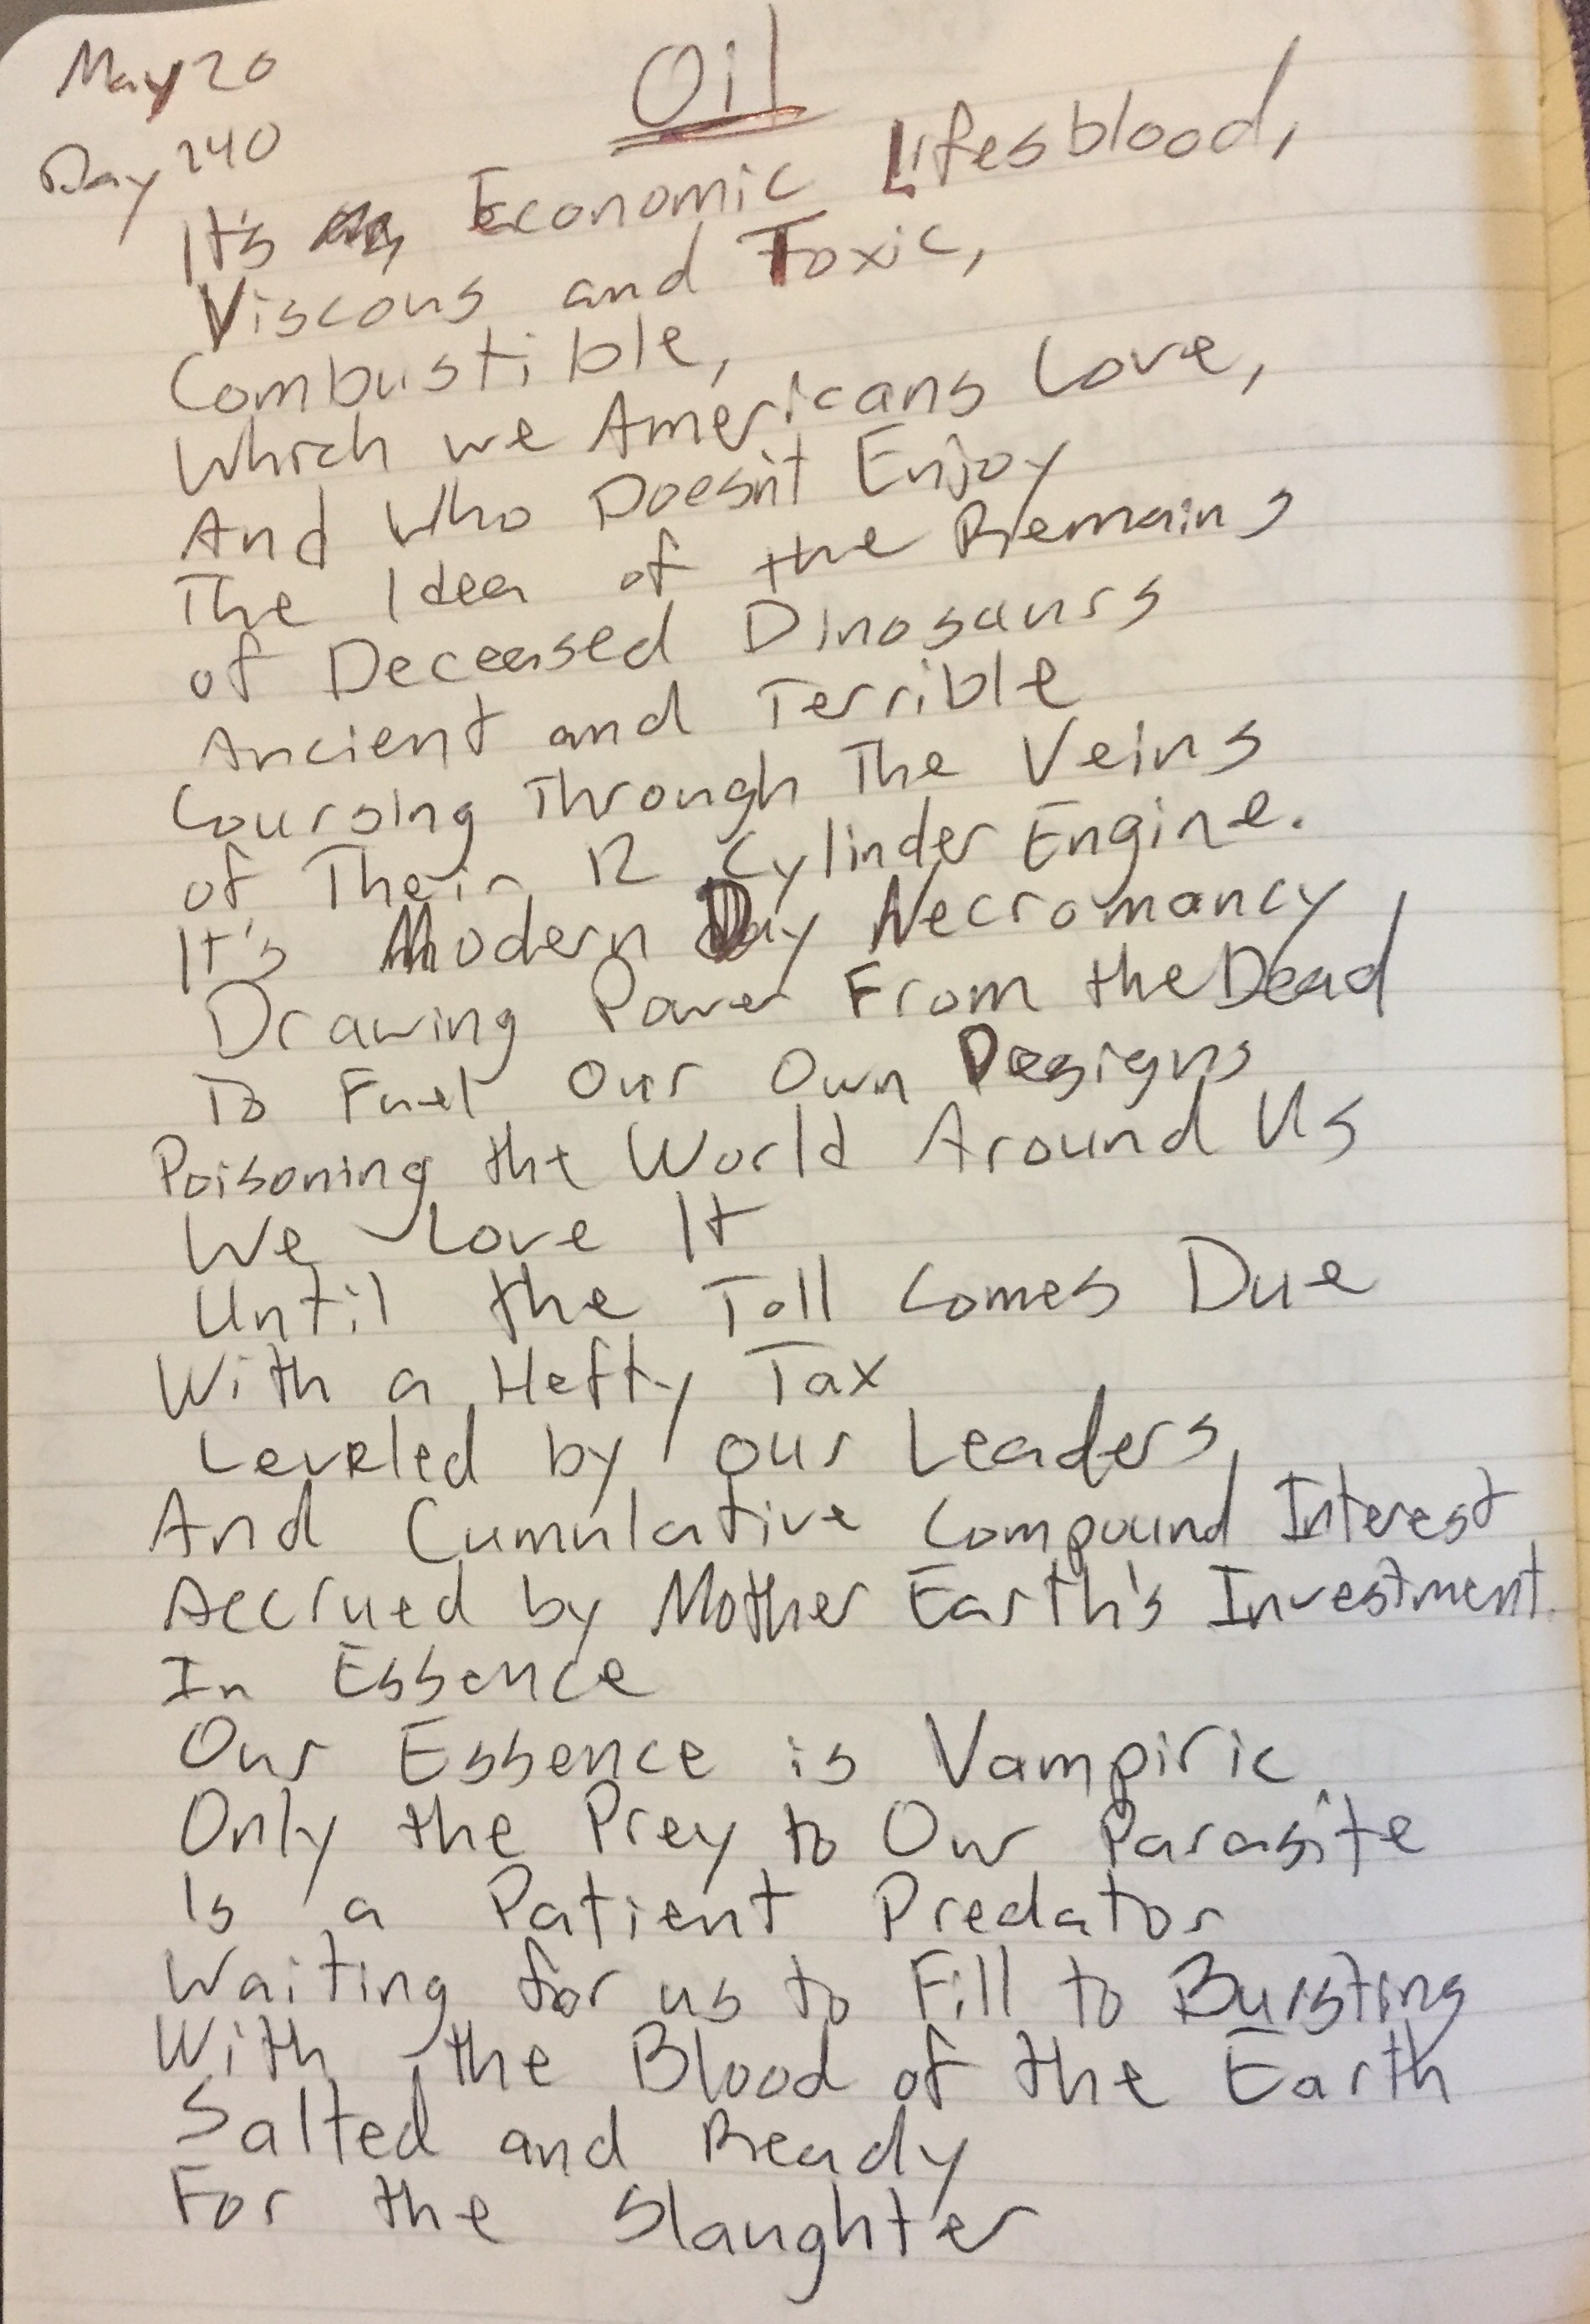 May 20
Oil
Day 240
It's Economic Lifesblood,
Viscous and Toxic,
Combustible,
Which we Americans Love,
And Who Doesn't Enjoy
The Idea of the Remains
of Deceased Dinosaurs
Ancient and Terrible
Coursing Through The Veins
of Their 12 Cylinder Engine.
It's Modern Day Necromancy,
Drawing Power From the Dead
To Fuel Our Own Designs
Poisoning the World Around Us
We Love It
Until the Toll Comes Due
With a Hefty Tax
Leveled by our Leaders,
And Cumulative Compound Interest
Accrued by Mother Earth's Investment.
In Essence
Our Essence is Vampiric
Only the Prey to Our Parasite
Is a Patient Predator
Waiting for us to Fill to Bursting
With the Blood of the Earth
Salted and Ready
For the Slaughter